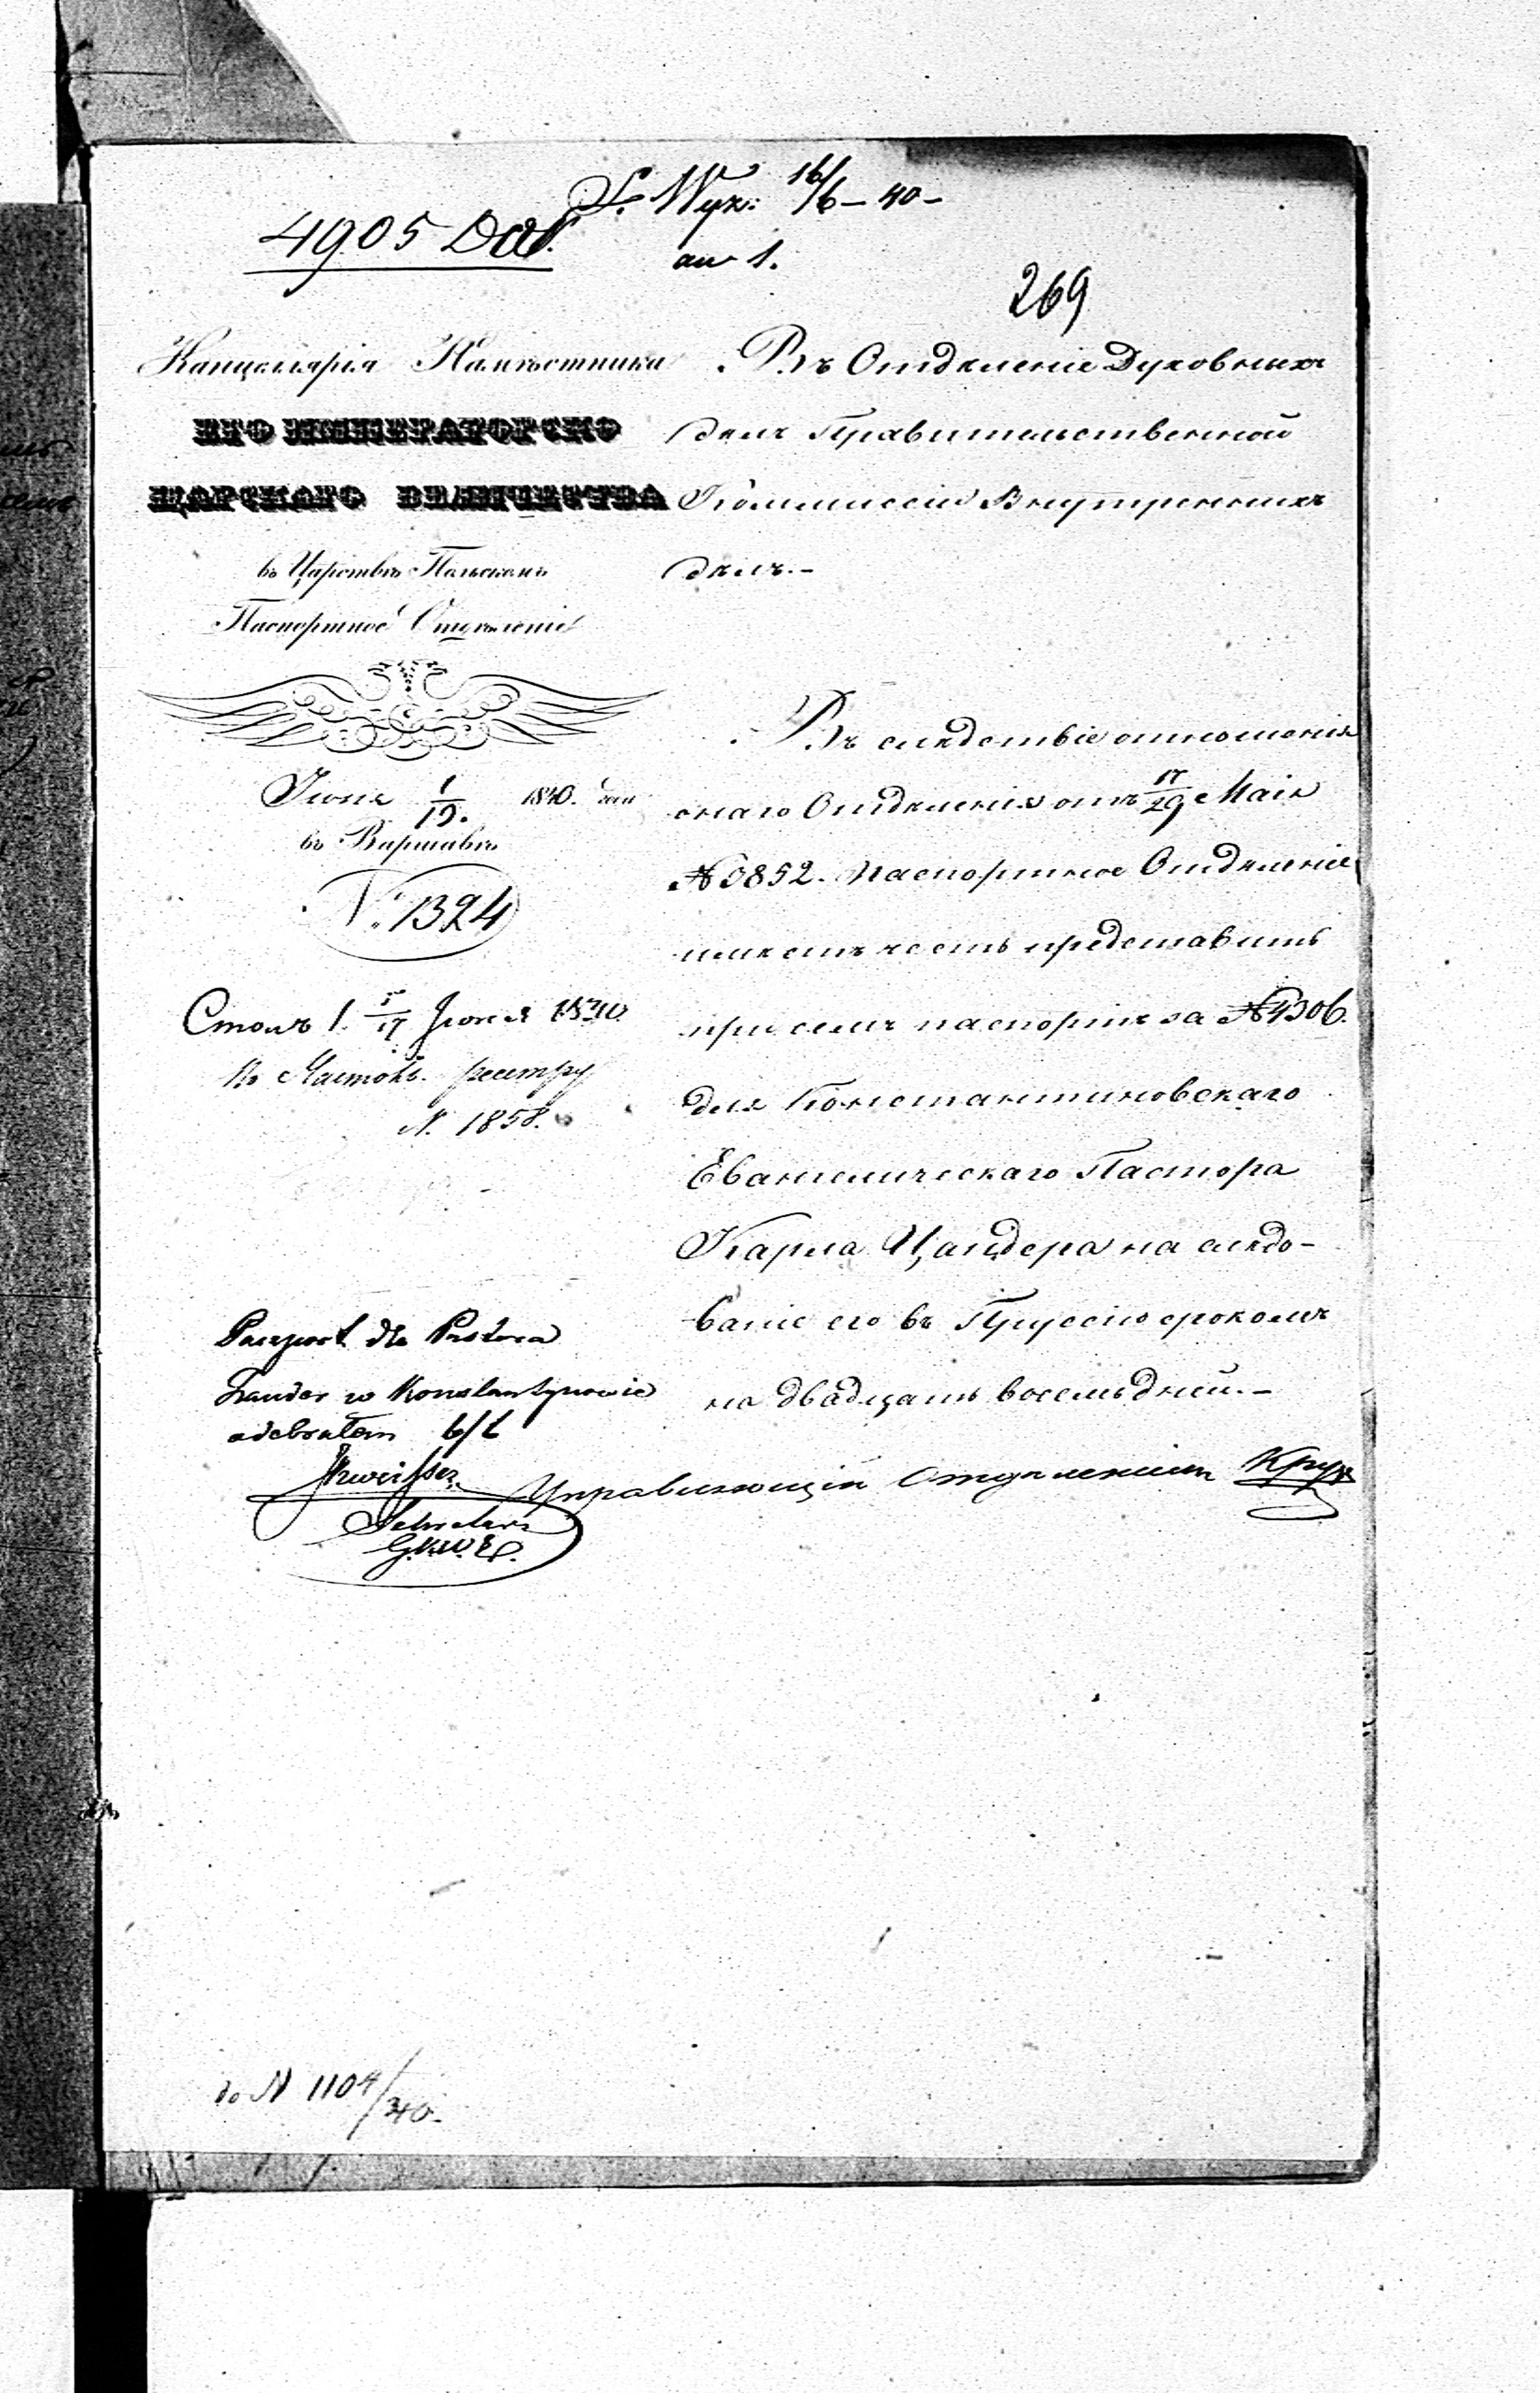 4905
16/6 – 40 –
1.
269
Канцелярія Намѣстника
ЕГО ИМПЕРАТОРСКО
ЦАРСКАГО ВЕЛИЧЕСТВА
въ Царствѣ Польскомъ
Паспортное Отдѣленіе
Іюня 1/13. 1840. дня
въ Варшавѣ
№ 1324
Столъ 1. 5/17 Іюня 1840
реестру
N. 1858.
Въ Отдѣленіе Духовныхъ
дѣлъ Правительственной
Коммиссіи Внутреннихъ
дѣлъ.-
Въ слѣдствіе отношенія
онаго Отдѣленія отъ 17/29 Маія
№ 5852. Паспортное Отдѣленіе
имѣетъ честь представить
при семъ паспортъ за № 4306.
для Константиновскаго
Евангелическаго Пастора
Карла Цандера на слѣдо-
ваніе его въ Пруссію срокомъ
на двадцать восемь дней.-
Управляющій Отдѣленіемъ
Paszport dla Pastora
Zander w Konstantynowie
odebrałem
Sekretarz
до N 1104/40.